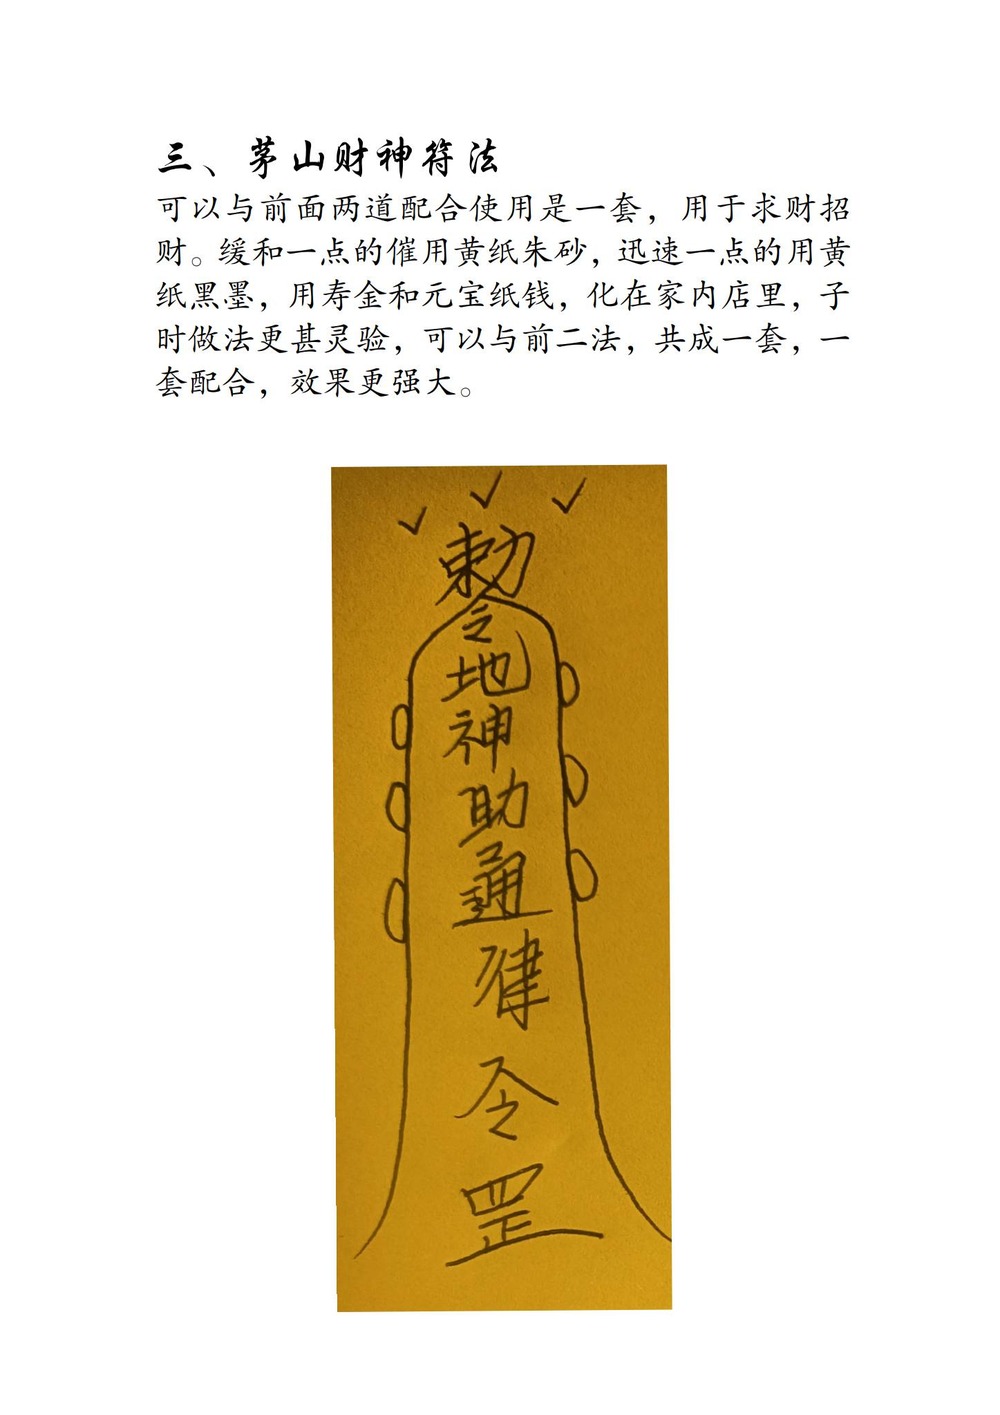 三、茅山财神符法
可以与前面两道配合使用是一套，用于求财招
财。缓和一点的催用黄纸朱砂，迅速一点的用黄
纸黑墨，用寿金和元宝纸钱，化在家内店里，子
时做法更甚灵验，可以与前二法，共成一套，一
套配合，效果更强大。
勅
令
地
神
助
通
律
令
罡